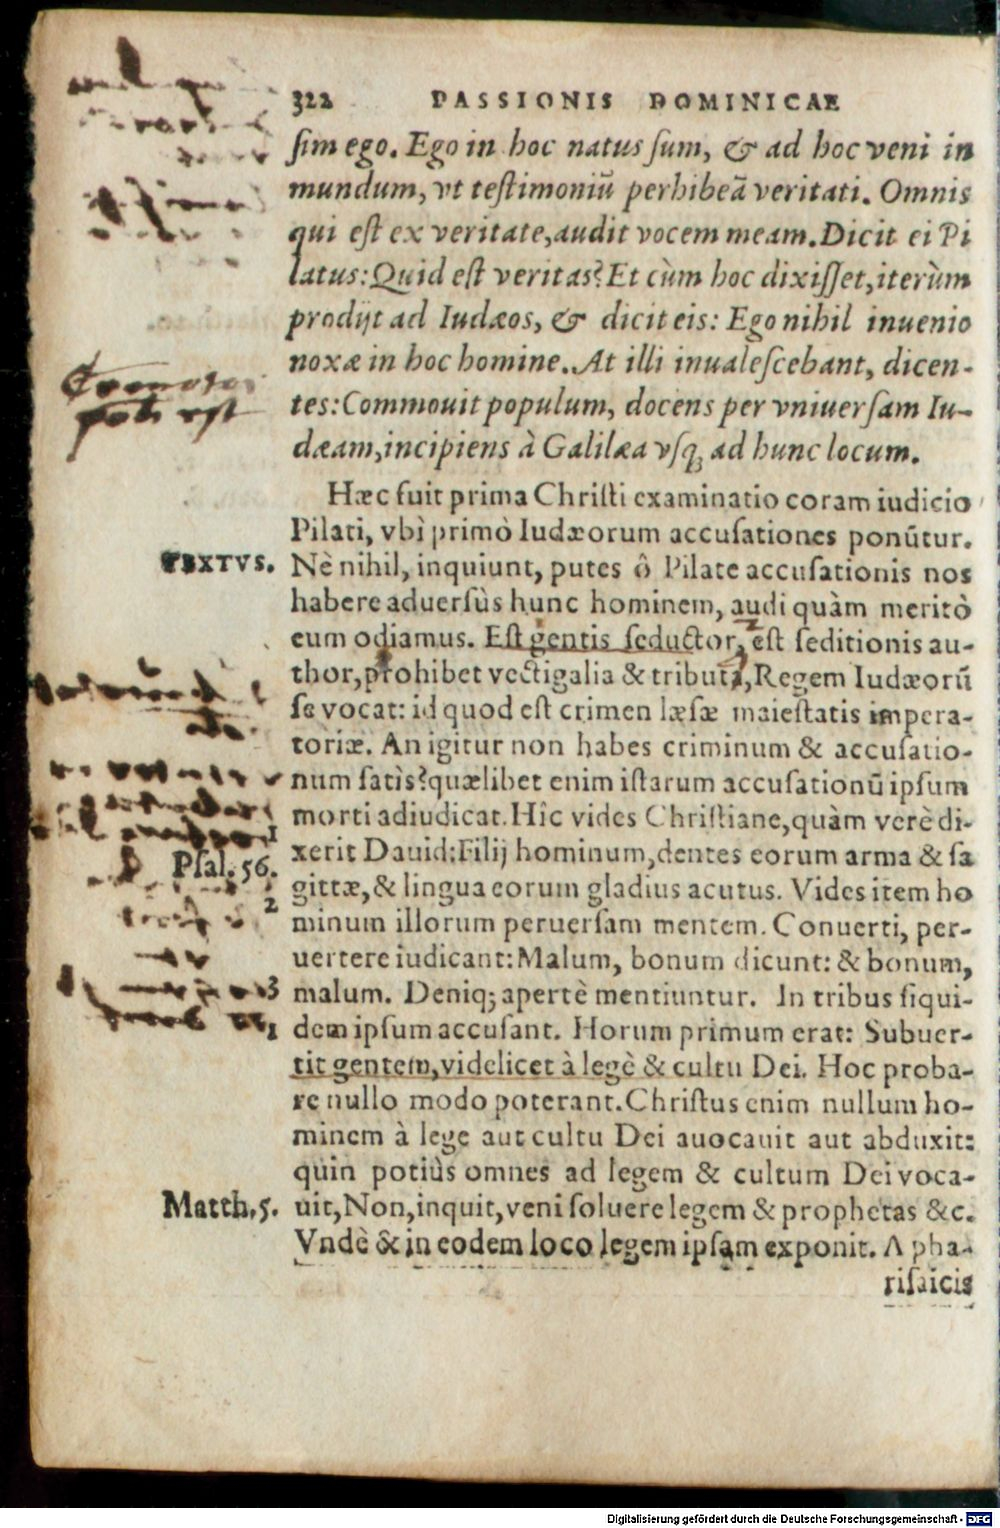 322 PASSIONIS DOMINICAE
ſim ego. Ego in hoc natus ſum, & ad hoc veni in
mundum, vt teſtimoniū perhibeā veritati. Omnis
qui eſt ex veritate, audit vocem meam. Dicit ei Pi
latus: Quid eſt veritas? Et cùm hoc dixiſſet, iterùm
prodijt ad Iudæos, & dicit eis: Ego nihil inuenio
noxæ in hoc homine. At illi inualeſcebant, dicen-
tes: Commouit populum, docens per vniuerſam Iu-
dæam, incipiens à Galilæa vſq; ad hunc locum.
Hæc fuit prima Chriſti examinatio coram iudicio
Pilati, vbì primò Iudæorum accuſationes ponūtur.
TEXTVS.
Nè nihil, inquiunt, putes ô Pilate accuſationis nos
habere aduerſùs hunc hominem, audi quàm meritò
eum odiamus. Eſt gentis ſeductor, eſt ſeditionis au-
thor, prohibet vectigalia & tributa, Regem Iudæorū
ſe vocat: id quod eſt crimen læſæ maieſtatis impera-
toriæ. An igitur non habes criminum & accuſatio-
num ſatìs? quælibet enim iſtarum accuſationū ipſum
morti adiudicat. Hîc vides Chriſtiane, quàm verè di-
1
Pſal. 56.
xerit Dauid: Filij hominum, dentes eorum arma & ſa
gittæ, & lingua eorum gladius acutus. Vides item ho
2
minum illorum peruerſam mentem. Conuerti, per-
uertere iudicant: Malum, bonum dicunt: & bonum,
3
malum. Deniq; apertè mentiuntur. In tribus ſiqui-
1
dem ipſum accuſant. Horum primum erat: Subuer-
tit gentem, videlicet à legè & cultu Dei. Hoc proba-
re nullo modo poterant. Chriſtus enim nullum ho-
minem à lege aut cultu Dei auocauit aut abduxit:
quin potiùs omnes ad legem & cultum Dei voca-
Matth. 5.
uit, Non, inquit, veni ſoluere legem & prophetas &c.
Vndè & in eodem loco legem ipſam exponit. A pha-
riſaicis
Digitalisierung gefördert durch die Deutsche Forschungsgemeinschaft - DFG